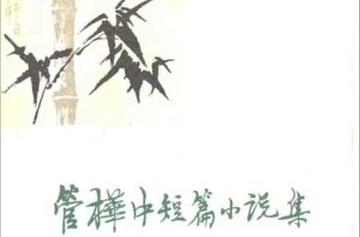 管桦中短篇小说集